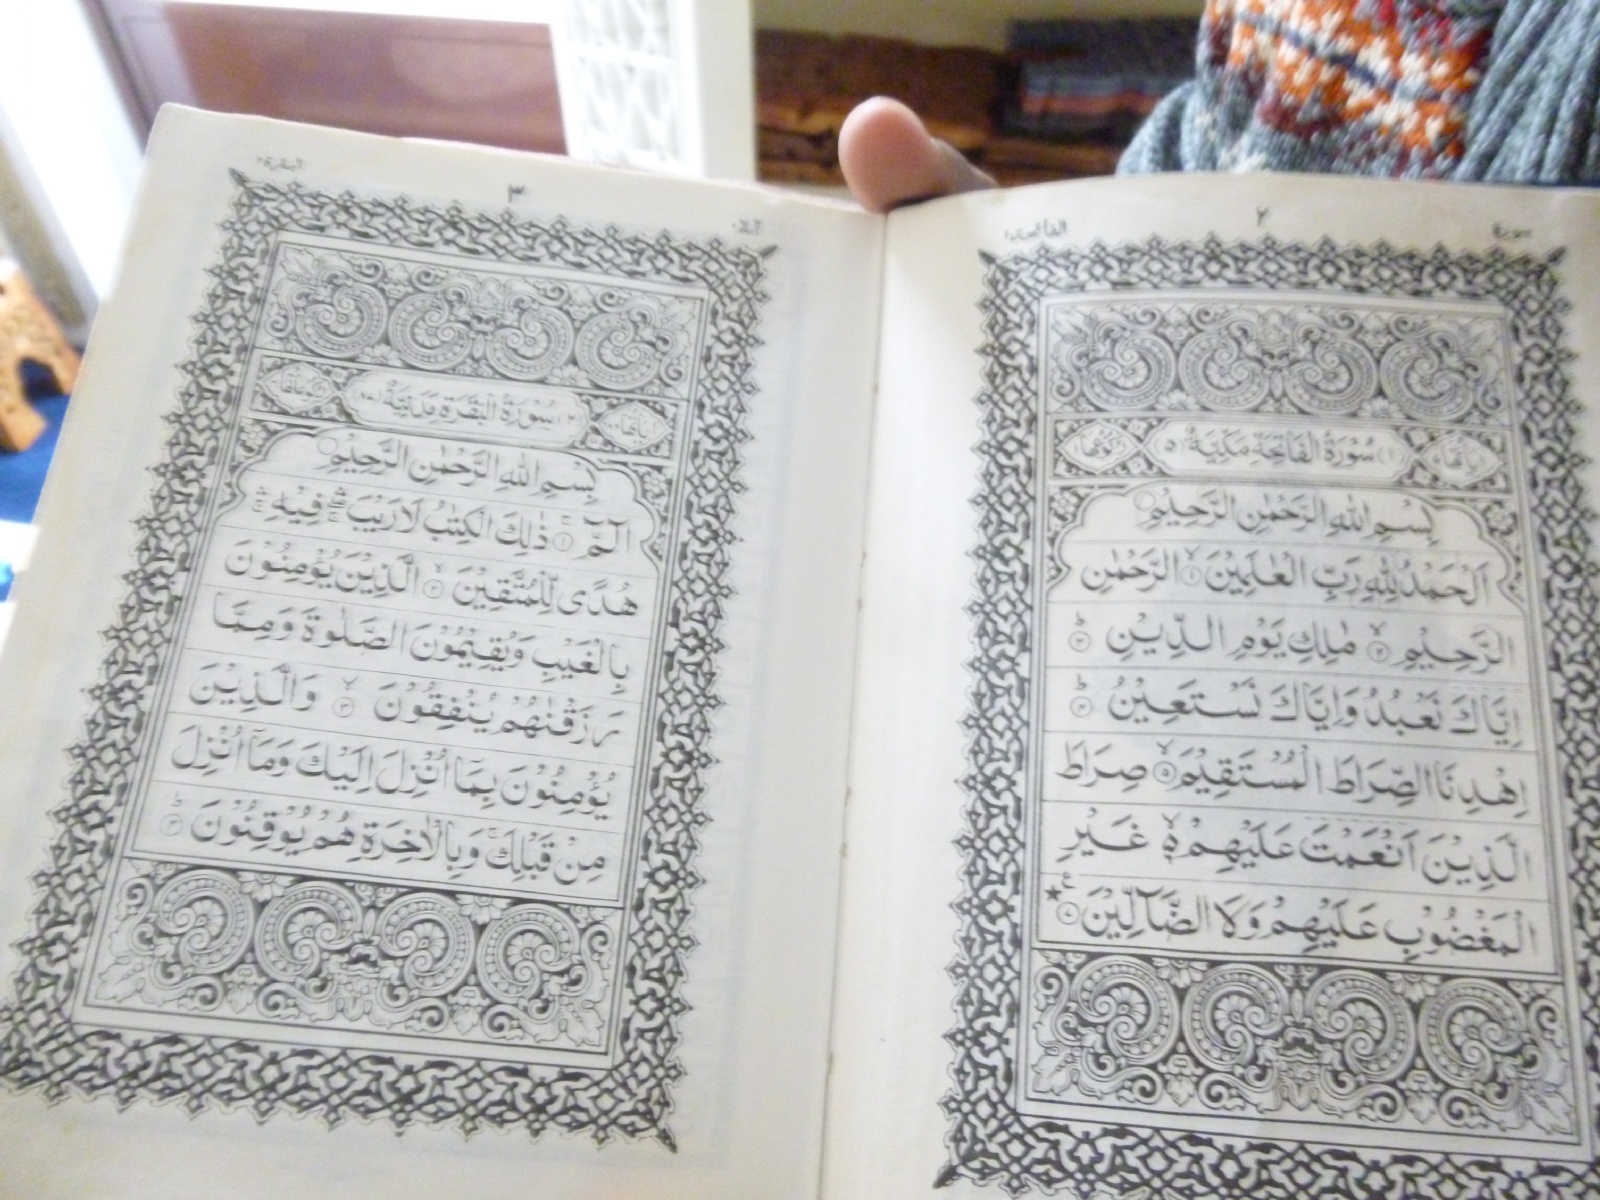 سورة
٢
الفاتحة ١
(١) سُوْرَةُ الْفَاتِحَةِ مَكِّيَّةٌ (٥)
بِسْمِ اللهِ الرَّحْمٰنِ الرَّحِيْمِ
اَلْحَمْدُ لِلّٰهِ رَبِّ الْعٰلَمِيْنَ ١ الرَّحْمٰنِ
الرَّحِيْمِ ٢ مٰلِكِ يَوْمِ الدِّيْنِ ٣
اِيَّاكَ نَعْبُدُ وَاِيَّاكَ نَسْتَعِيْنُ ٤
اِهْدِنَا الصِّرَاطَ الْمُسْتَقِيْمَ ٥ صِرَاطَ
الَّذِيْنَ اَنْعَمْتَ عَلَيْهِمْ ٦ غَيْرِ
الْمَغْضُوْبِ عَلَيْهِمْ وَلَا الضَّآلِّيْنَ ٧
٣
البقرة ٢
(٢) سُوْرَةُ الْبَقَرَةِ مَدَنِيَّةٌ (٨٧)
بِسْمِ اللهِ الرَّحْمٰنِ الرَّحِيْمِ
الٓمّٓ ١ ذٰلِكَ الْكِتٰبُ لَا رَيْبَ فِيْهِ
هُدًى لِّلْمُتَّقِيْنَ ٢ الَّذِيْنَ يُؤْمِنُوْنَ
بِالْغَيْبِ وَيُقِيْمُوْنَ الصَّلٰوةَ وَمِمَّا
رَزَقْنٰهُمْ يُنْفِقُوْنَ ٣ وَالَّذِيْنَ
يُؤْمِنُوْنَ بِمَآ اُنْزِلَ اِلَيْكَ وَمَآ اُنْزِلَ
مِنْ قَبْلِكَ وَبِالْاٰخِرَةِ هُمْ يُوْقِنُوْنَ ٤